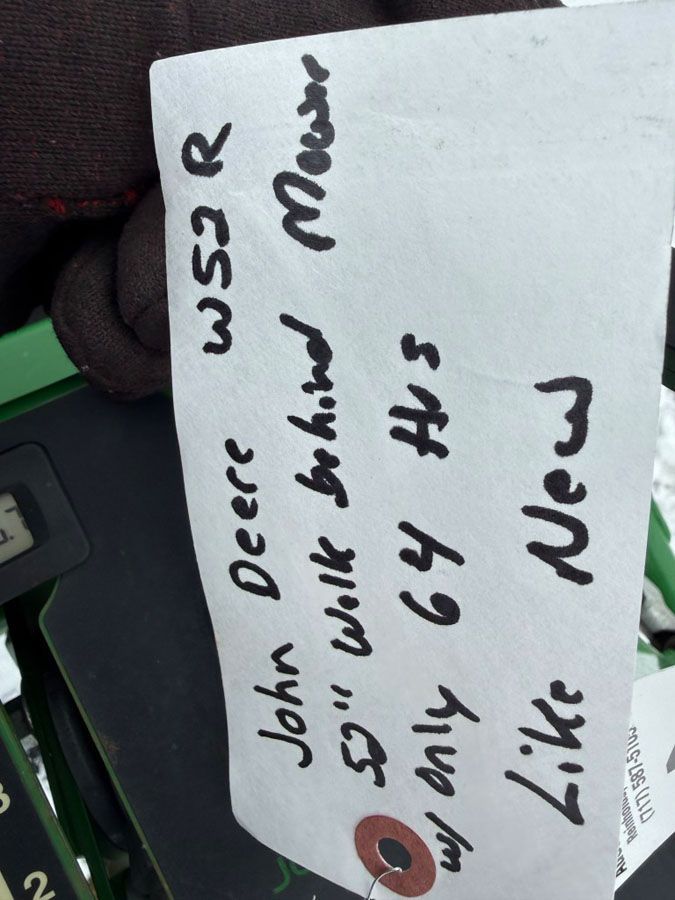 John Deere W52R
52" Walk behind Mower
w/ only 64 Hrs
Like New
(717) 587-570
3
2